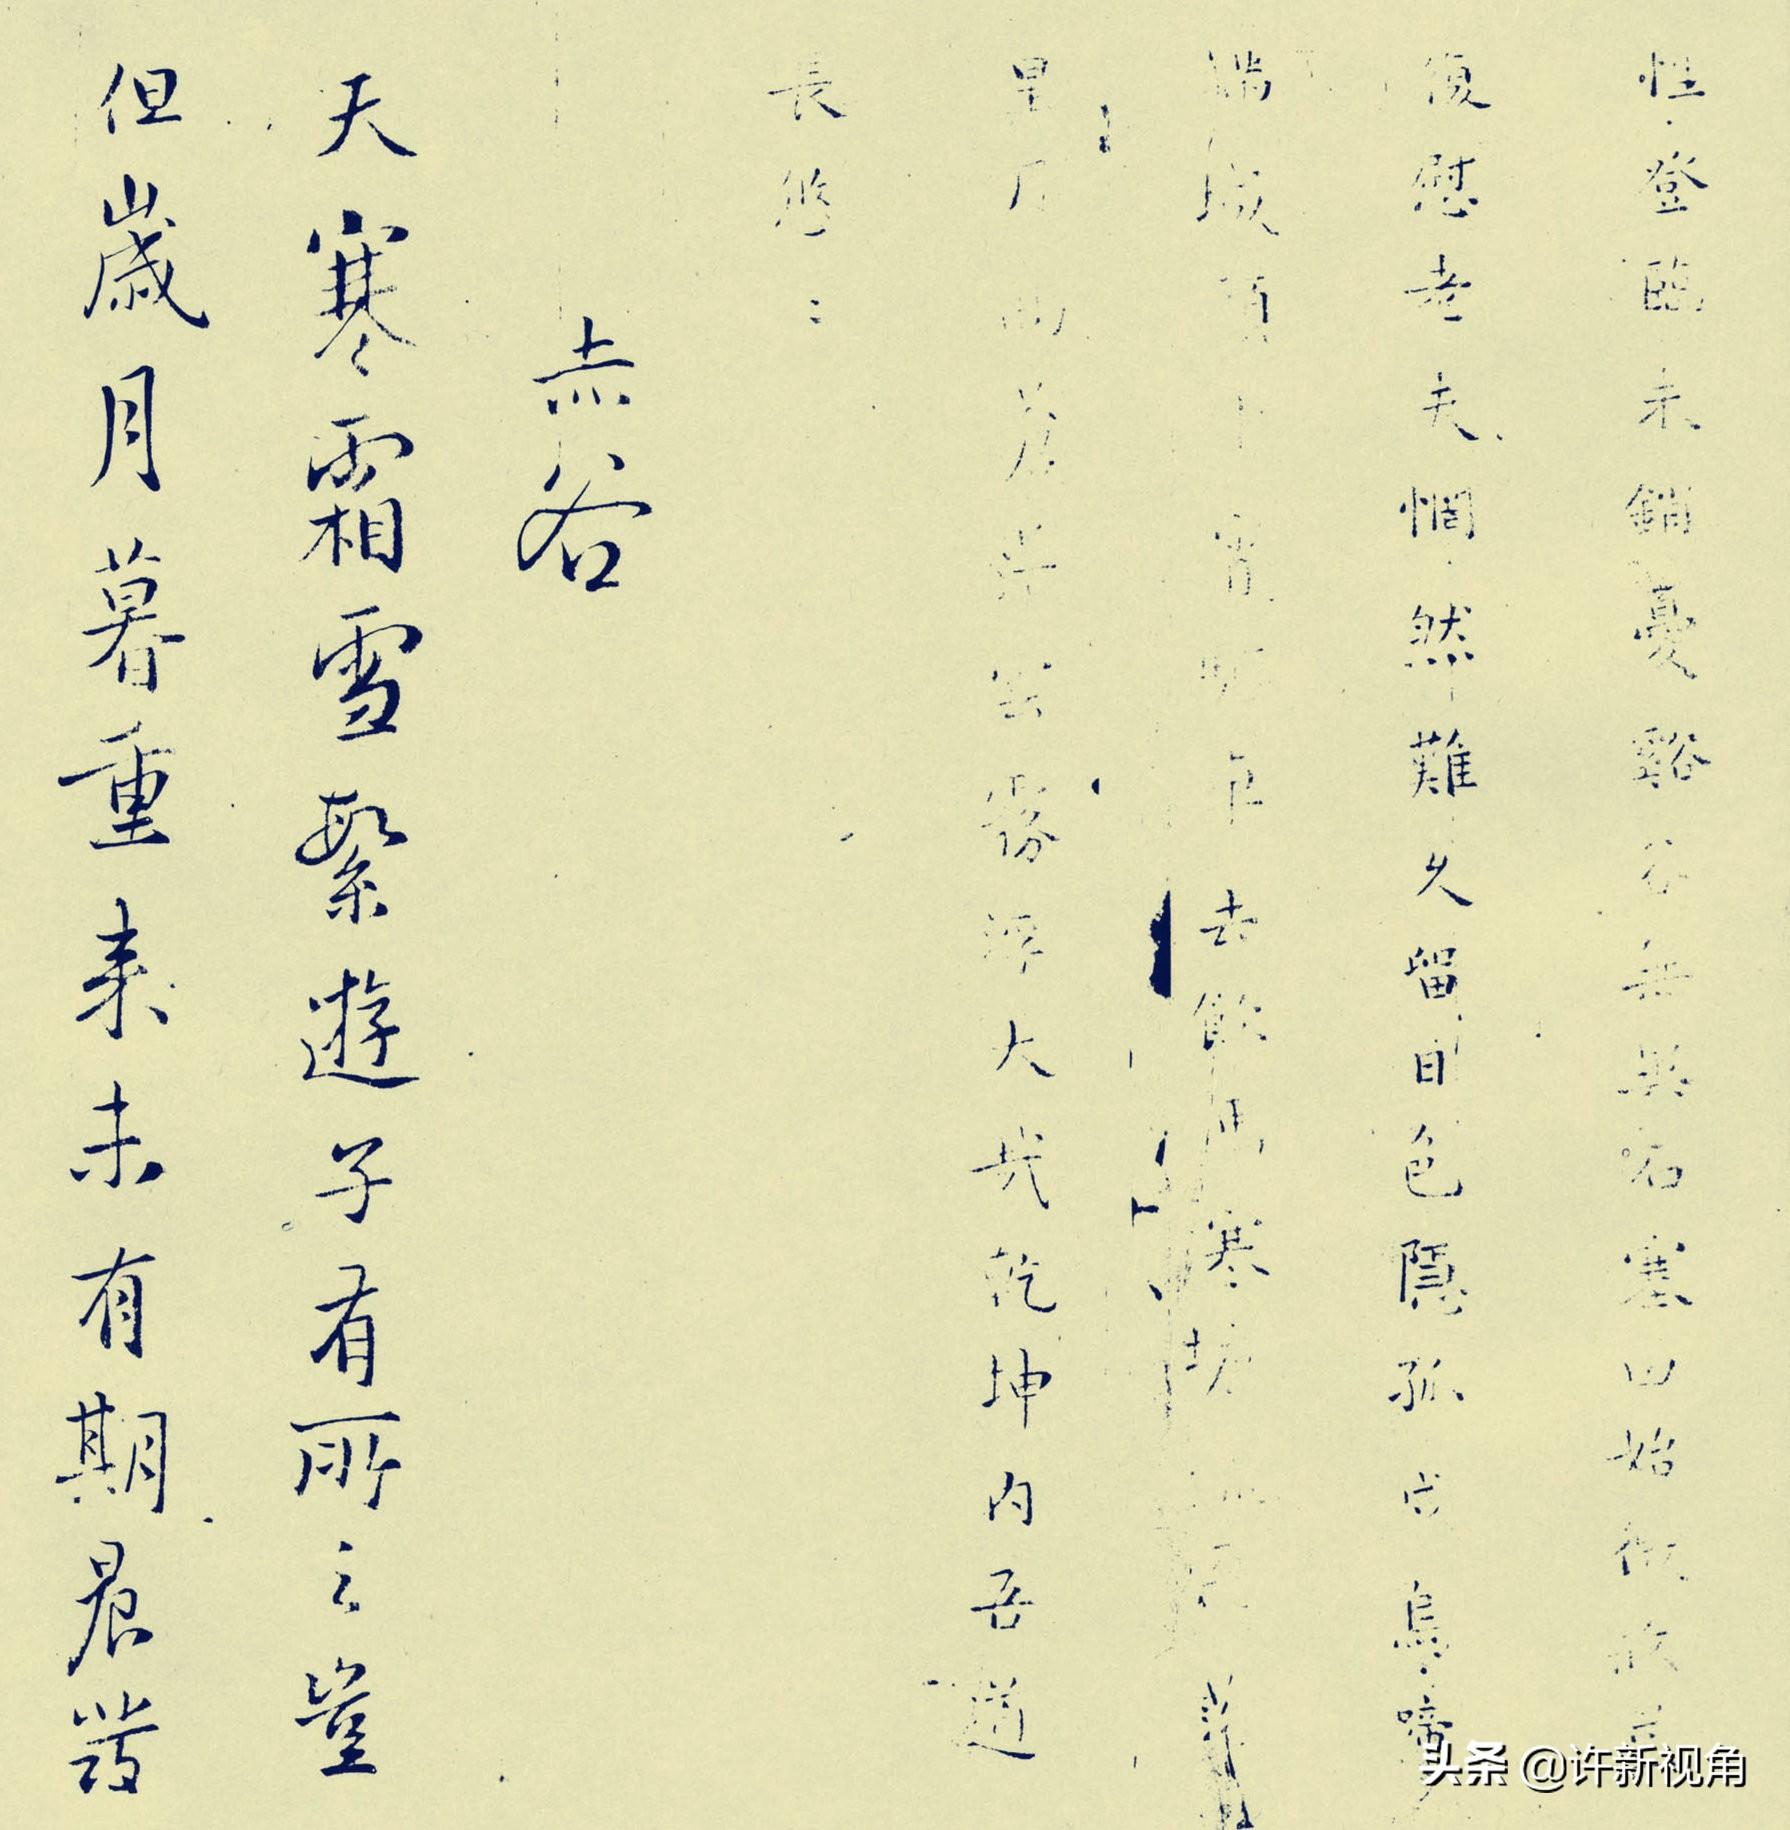 性登臨未銷憂谿谷無異石塞田始微收
復慰老夫惘然難久留日色隱孤戍烏啼
城宵車去飲馬寒塘
星月蒼雲霧浮大哉乾坤内吾道
長悠〻
赤谷
天寒霜雪繁遊子有所之豈
但歲月暮重来未有期晨發
头条 @许新视角